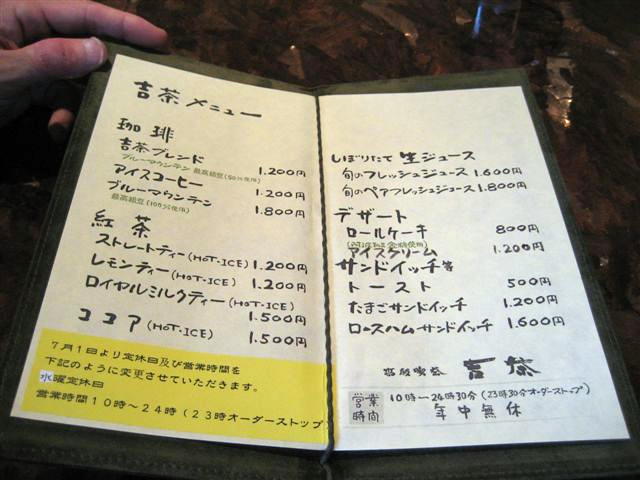 吉茶メニュー
珈琲
吉茶ブレンド 1.200円
ブルーマウンテン 最高級豆(50%使用)
アイスコーヒー 1.200円
ブルーマウンテン 1.800円
最高級豆(100%使用)
紅茶
ストレートティー(HOT・ICE) 1.200円
レモンティー(HOT・ICE) 1.200円
ロイヤルミルクティー(HOT・ICE) 1.500円
ココア(HOT・ICE) 1.500円
7月1日より定休日及び営業時間を
下記のように変更させていただきます。
水曜定休日
営業時間10時~24時(23時オーダーストップ)
しぼりたて 生ジュース
旬のフレッシュジュース 1.600円
旬のペアフレッシュジュース 1.800円
デザート
ロールケーキ 800円
アイスクリーム 1.200円
サンドイッチ等
トースト 500円
たまごサンドイッチ 1.200円
ロースハムサンドイッチ 1.600円
吉茶
営業時間 10時~24時30分(23時30分オーダーストップ)
年中無休